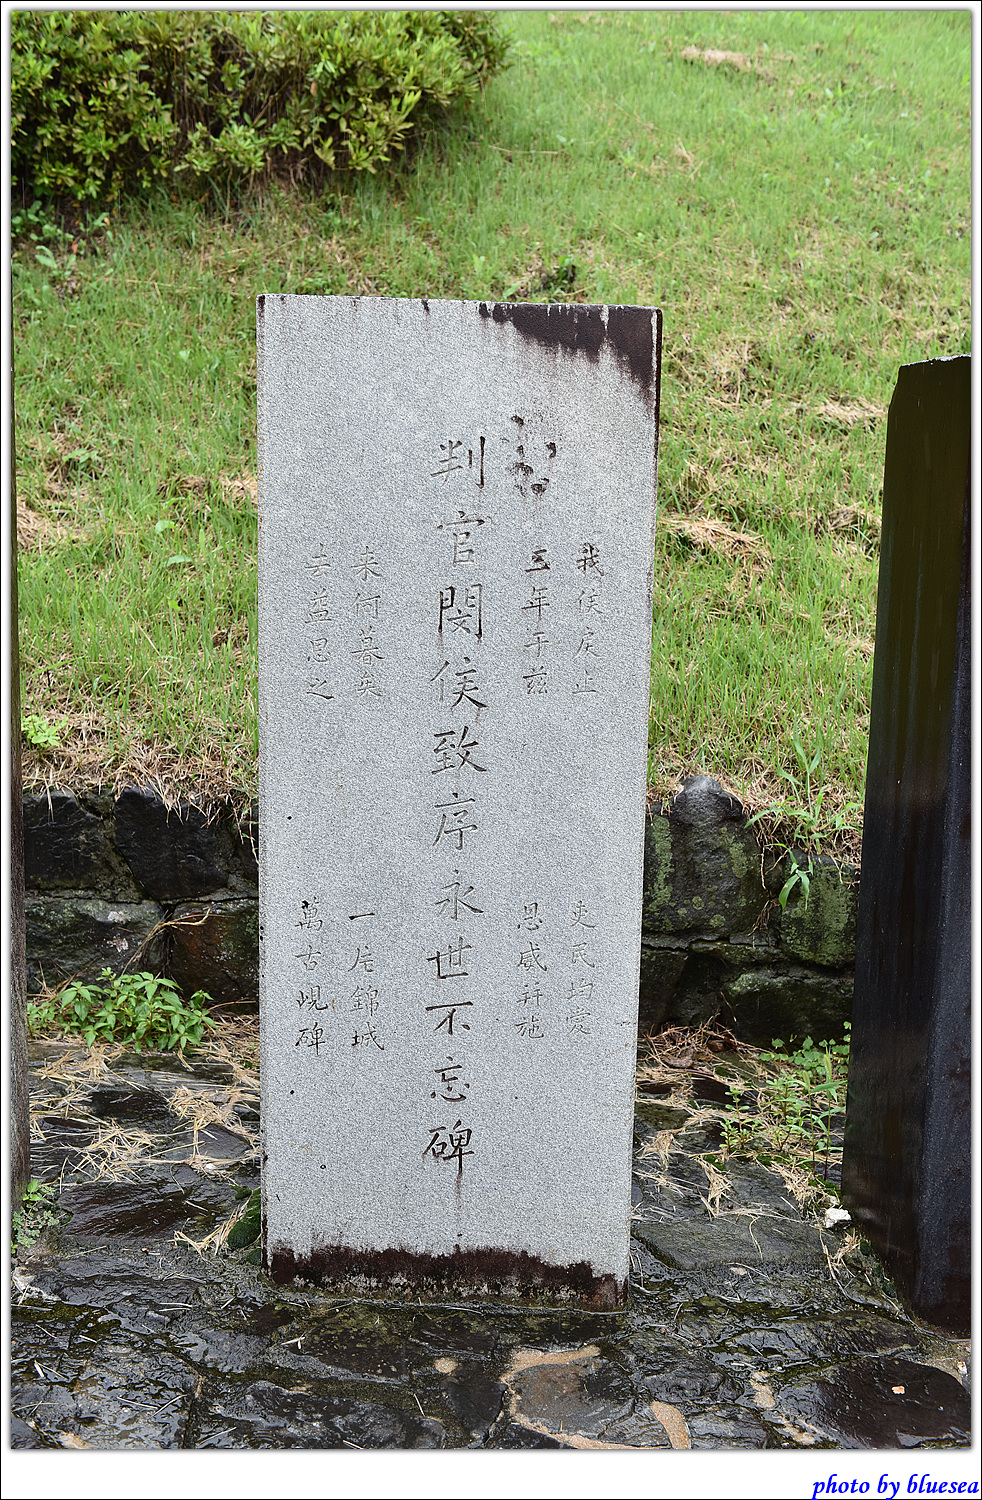 我侯戾止
吏民均愛
三年于玆
恩威幷施
判官閔侯致序永世不忘碑
來何暮矣
一片錦城
去益思之
萬古峴碑
photo by bluesea